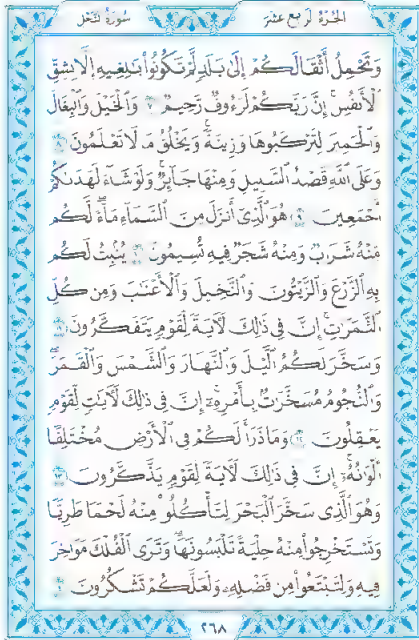 الجزء الرابع عشر
سورة النحل
وَتَحْمِلُ أَثْقَالَكُمْ إِلَىٰ بَلَدٍ لَّمْ تَكُونُوا۟ بَـٰلِغِيهِ إِلَّا بِشِقِّ
ٱلْأَنفُسِ ۚ إِنَّ رَبَّكُمْ لَرَءُوفٌ رَّحِيمٌ ٧ وَٱلْخَيْلَ وَٱلْبِغَالَ
وَٱلْحَمِيرَ لِتَرْكَبُوهَا وَزِينَةً ۚ وَيَخْلُقُ مَا لَا تَعْلَمُونَ ٨
وَعَلَى ٱللَّهِ قَصْدُ ٱلسَّبِيلِ وَمِنْهَا جَآئِرٌ ۚ وَلَوْ شَآءَ لَهَدَىٰكُمْ
أَجْمَعِينَ ٩ هُوَ ٱلَّذِىٓ أَنزَلَ مِنَ ٱلسَّمَآءِ مَآءً ۖ لَّكُم
مِّنْهُ شَرَابٌ وَمِنْهُ شَجَرٌ فِيهِ تُسِيمُونَ ١٠ يُنۢبِتُ لَكُم
بِهِ ٱلزَّرْعَ وَٱلزَّيْتُونَ وَٱلنَّخِيلَ وَٱلْأَعْنَـٰبَ وَمِن كُلِّ
ٱلثَّمَرَٰتِ ۗ إِنَّ فِى ذَٰلِكَ لَـَٔايَةً لِّقَوْمٍ يَتَفَكَّرُونَ ١١
وَسَخَّرَ لَكُمُ ٱلَّيْلَ وَٱلنَّهَارَ وَٱلشَّمْسَ وَٱلْقَمَرَ ۖ
وَٱلنُّجُومُ مُسَخَّرَٰتٌۢ بِأَمْرِهِۦٓ ۗ إِنَّ فِى ذَٰلِكَ لَـَٔايَـٰتٍ لِّقَوْمٍ
يَعْقِلُونَ ١٢ وَمَا ذَرَأَ لَكُمْ فِى ٱلْأَرْضِ مُخْتَلِفًا
أَلْوَٰنُهُۥٓ ۗ إِنَّ فِى ذَٰلِكَ لَـَٔايَةً لِّقَوْمٍ يَذَّكَّرُونَ ١٣
وَهُوَ ٱلَّذِى سَخَّرَ ٱلْبَحْرَ لِتَأْكُلُوا۟ مِنْهُ لَحْمًا طَرِيًّا
وَتَسْتَخْرِجُوا۟ مِنْهُ حِلْيَةً تَلْبَسُونَهَا وَتَرَى ٱلْفُلْكَ مَوَاخِرَ
فِيهِ وَلِتَبْتَغُوا۟ مِن فَضْلِهِۦ وَلَعَلَّكُمْ تَشْكُرُونَ ١٤
٢٦٨